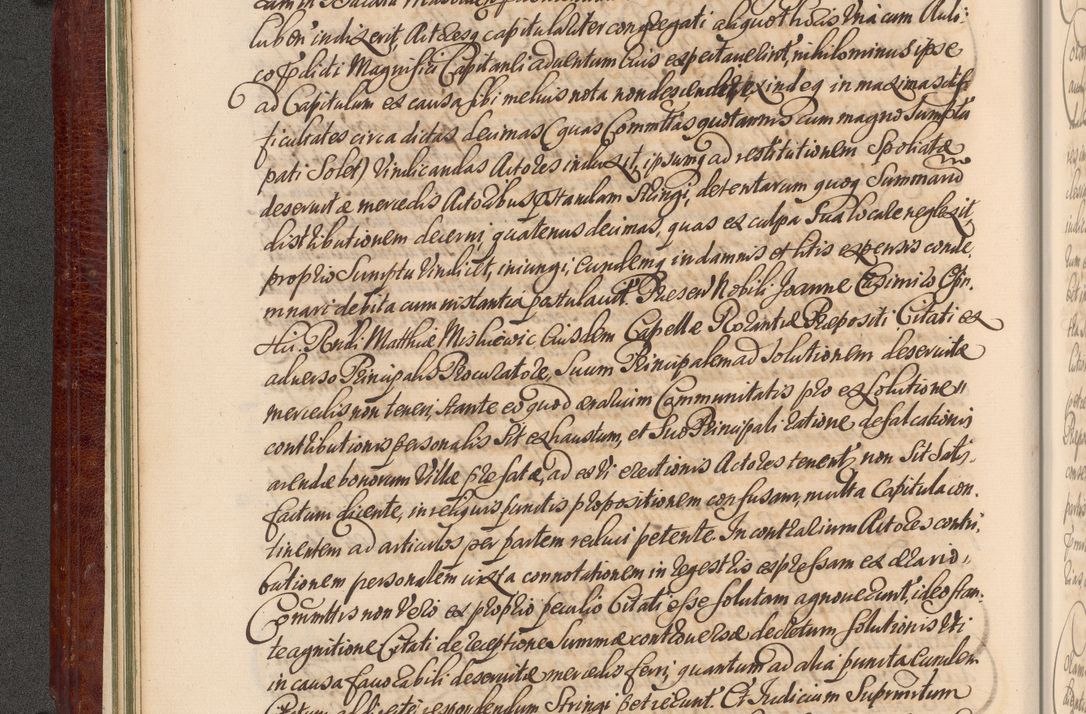 luben indixerit, Actoresq capitulariter congregati aliquot horis Una cum Auli:
co Prædicti Magnifici Capitanei adventum Ejus expectaverint, nihilominus ipse
ad Capitulum ex causa sibi melius nota non descenderit, exindeq in maximas dif
ficultates circa dictas decimas (quas Committas quotannis cum magno Sumptu
pati Solet) Vindicandas Actores induxit, ipsumq ad restitutionem Spoliatæ
deservitæ mercedis Actoribus præstandam Stringi, detentarum quoq Summario
distributionem decerni, quatenus decimas, quas ex culpa Sua locare neglexit
proprio Sumptu Vindicet, injungi, Eundemq in damnis et litis expensis conde,
mnari debita cum instantia postulavit. Præsen Nobili Joanne Casimiro
Rndi Matthiæ Ejusdem Capellæ Rorantiæ Præpositi Citati ex
adverso Principalis Procuratore, Suum Principalem ad Solutionem deservitæ
mercedis non teneri, stante eo quod ærarium Communitatis pro exsolutione
contributionis personalis Sit exhaustum, et Suo Principali ratione defalcationis
arendæ bonorum Villæ præfatæ, ad ex Vi erectionis Actores tenent, non Sit Satis,
factum dicente, in reliquis punctis propositionem confusam, multa Capitula con,
tinentem ad articulos per partem reduci petente. In contrarium Actores contri,
butionem personalem juxta connotationem in regestris expressam ex ærario
Committis non Vero ex proprio peculio Citati esse solutam agnoverunt, ideo stan,
te agnitione Citati de receptione Summæ controversæ decretum solutionis Uti
in causa favorabili deservitæ mercedis ferri, quantum ad alia puncta Eundem
Citatum ad directe respondendum Stringi petierunt. Et Judicium Supremitum